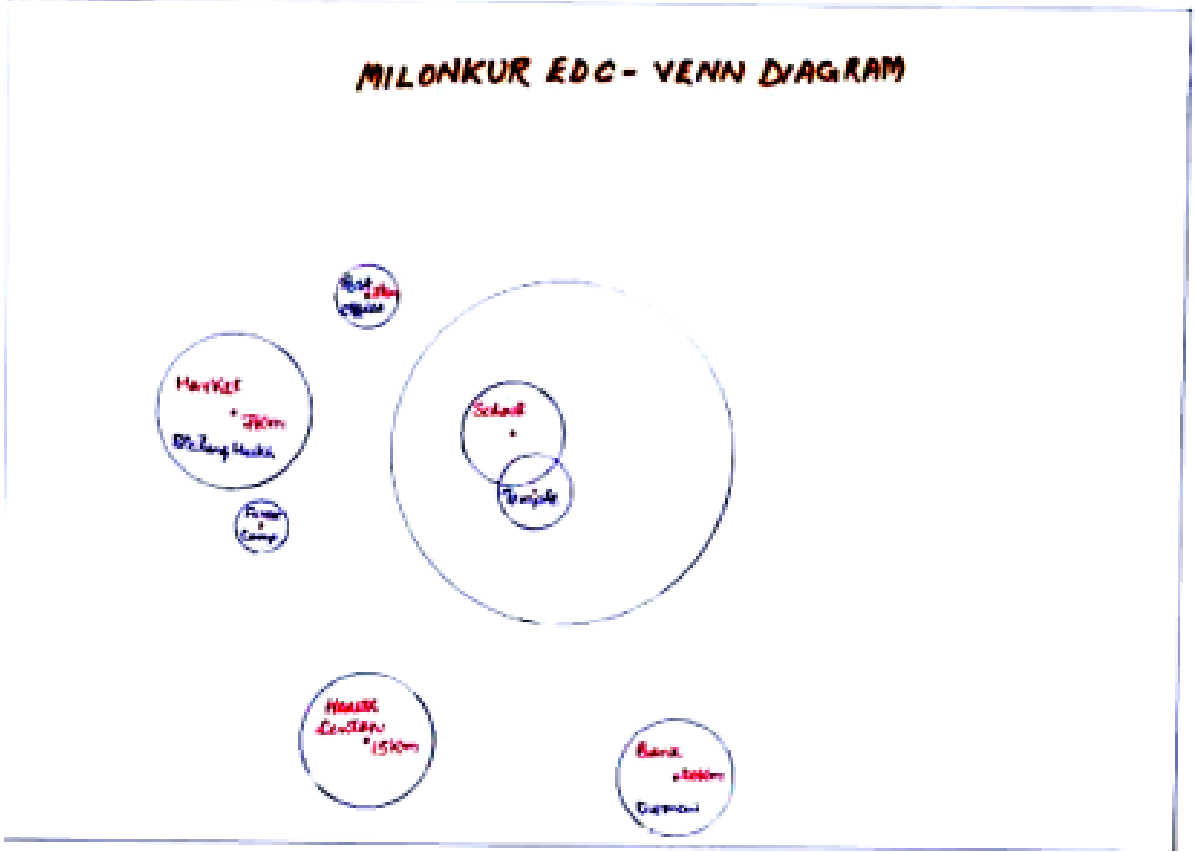 MILONKUR EDC- VENN DIAGRAM
Post
office
Market
7km
School
Temple
Camp
Health
Center
15km
Bank